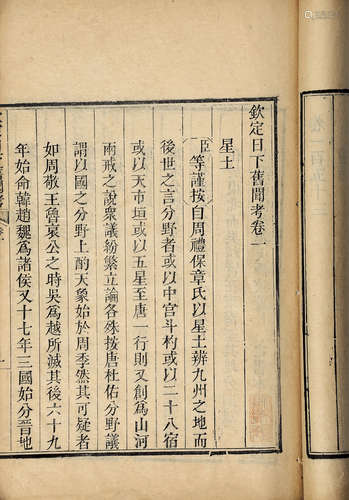 欽定日下舊聞考卷一
星土
臣等謹按自周禮保章氏以星土辨九州之地而
後世之言分野者或以中宮斗杓或以二十八宿
或以天市垣或以五星至唐一行則又創為山河
兩戒之說衆議紛繁立論各殊按唐杜佑分野議
謂以國之分野上酌天象始於周季然其可疑者
如周敬王魯哀公之時吳為越所滅其後六十九
年始命韓趙魏為諸侯又十七年三國始分晉地